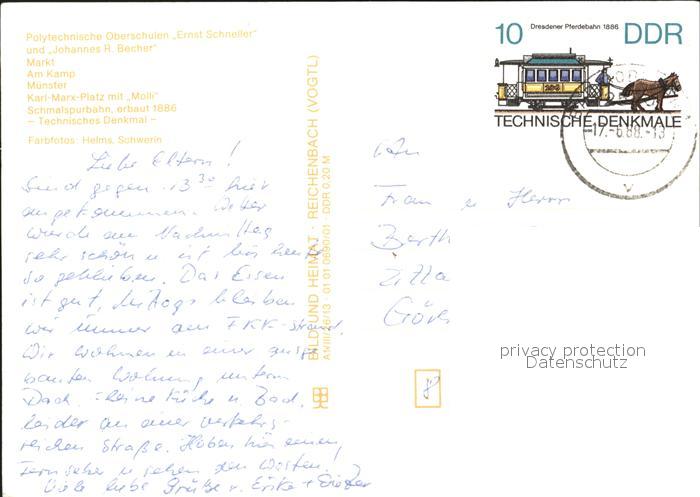 Polytechnische Oberschulen „Ernst Schneller"
und „Johannes R. Becher"
Markt
Am Kamp
Münster
Karl-Marx-Platz mit „Molli"
Schmalspurbahn, erbaut 1886
– Technisches Denkmal –
Farbfotos: Helms, Schwerin
Liebe Eltern!
Sind gegen 13³⁰ hier
angekommen. Wetter
wurde am Nachmittag
sehr schön u ist bis heute
so geblieben. Das Essen
ist gut, mittags bleiben
wir immer am FKK-Strand.
Wir wohnen in einer ausge-
bauten Wohnung unterm
Dach. kleine Küche u Bad,
leider an einer verkehrs-
reichen Straße. Haben hier einen
Fernseher u sehen den Westen!
Viele liebe Grüße v. Erika + Dieter
BILD UND HEIMAT · REICHENBACH (VOGTL)
A1/III/26/13 · 01 01 0690/01 · DDR 0,20 M
10
Dresdener Pferdebahn 1886
DDR
TECHNISCHE DENKMALE
17.-6.88.-13
An
Frau u Herrn
privacy protection
Datenschutz